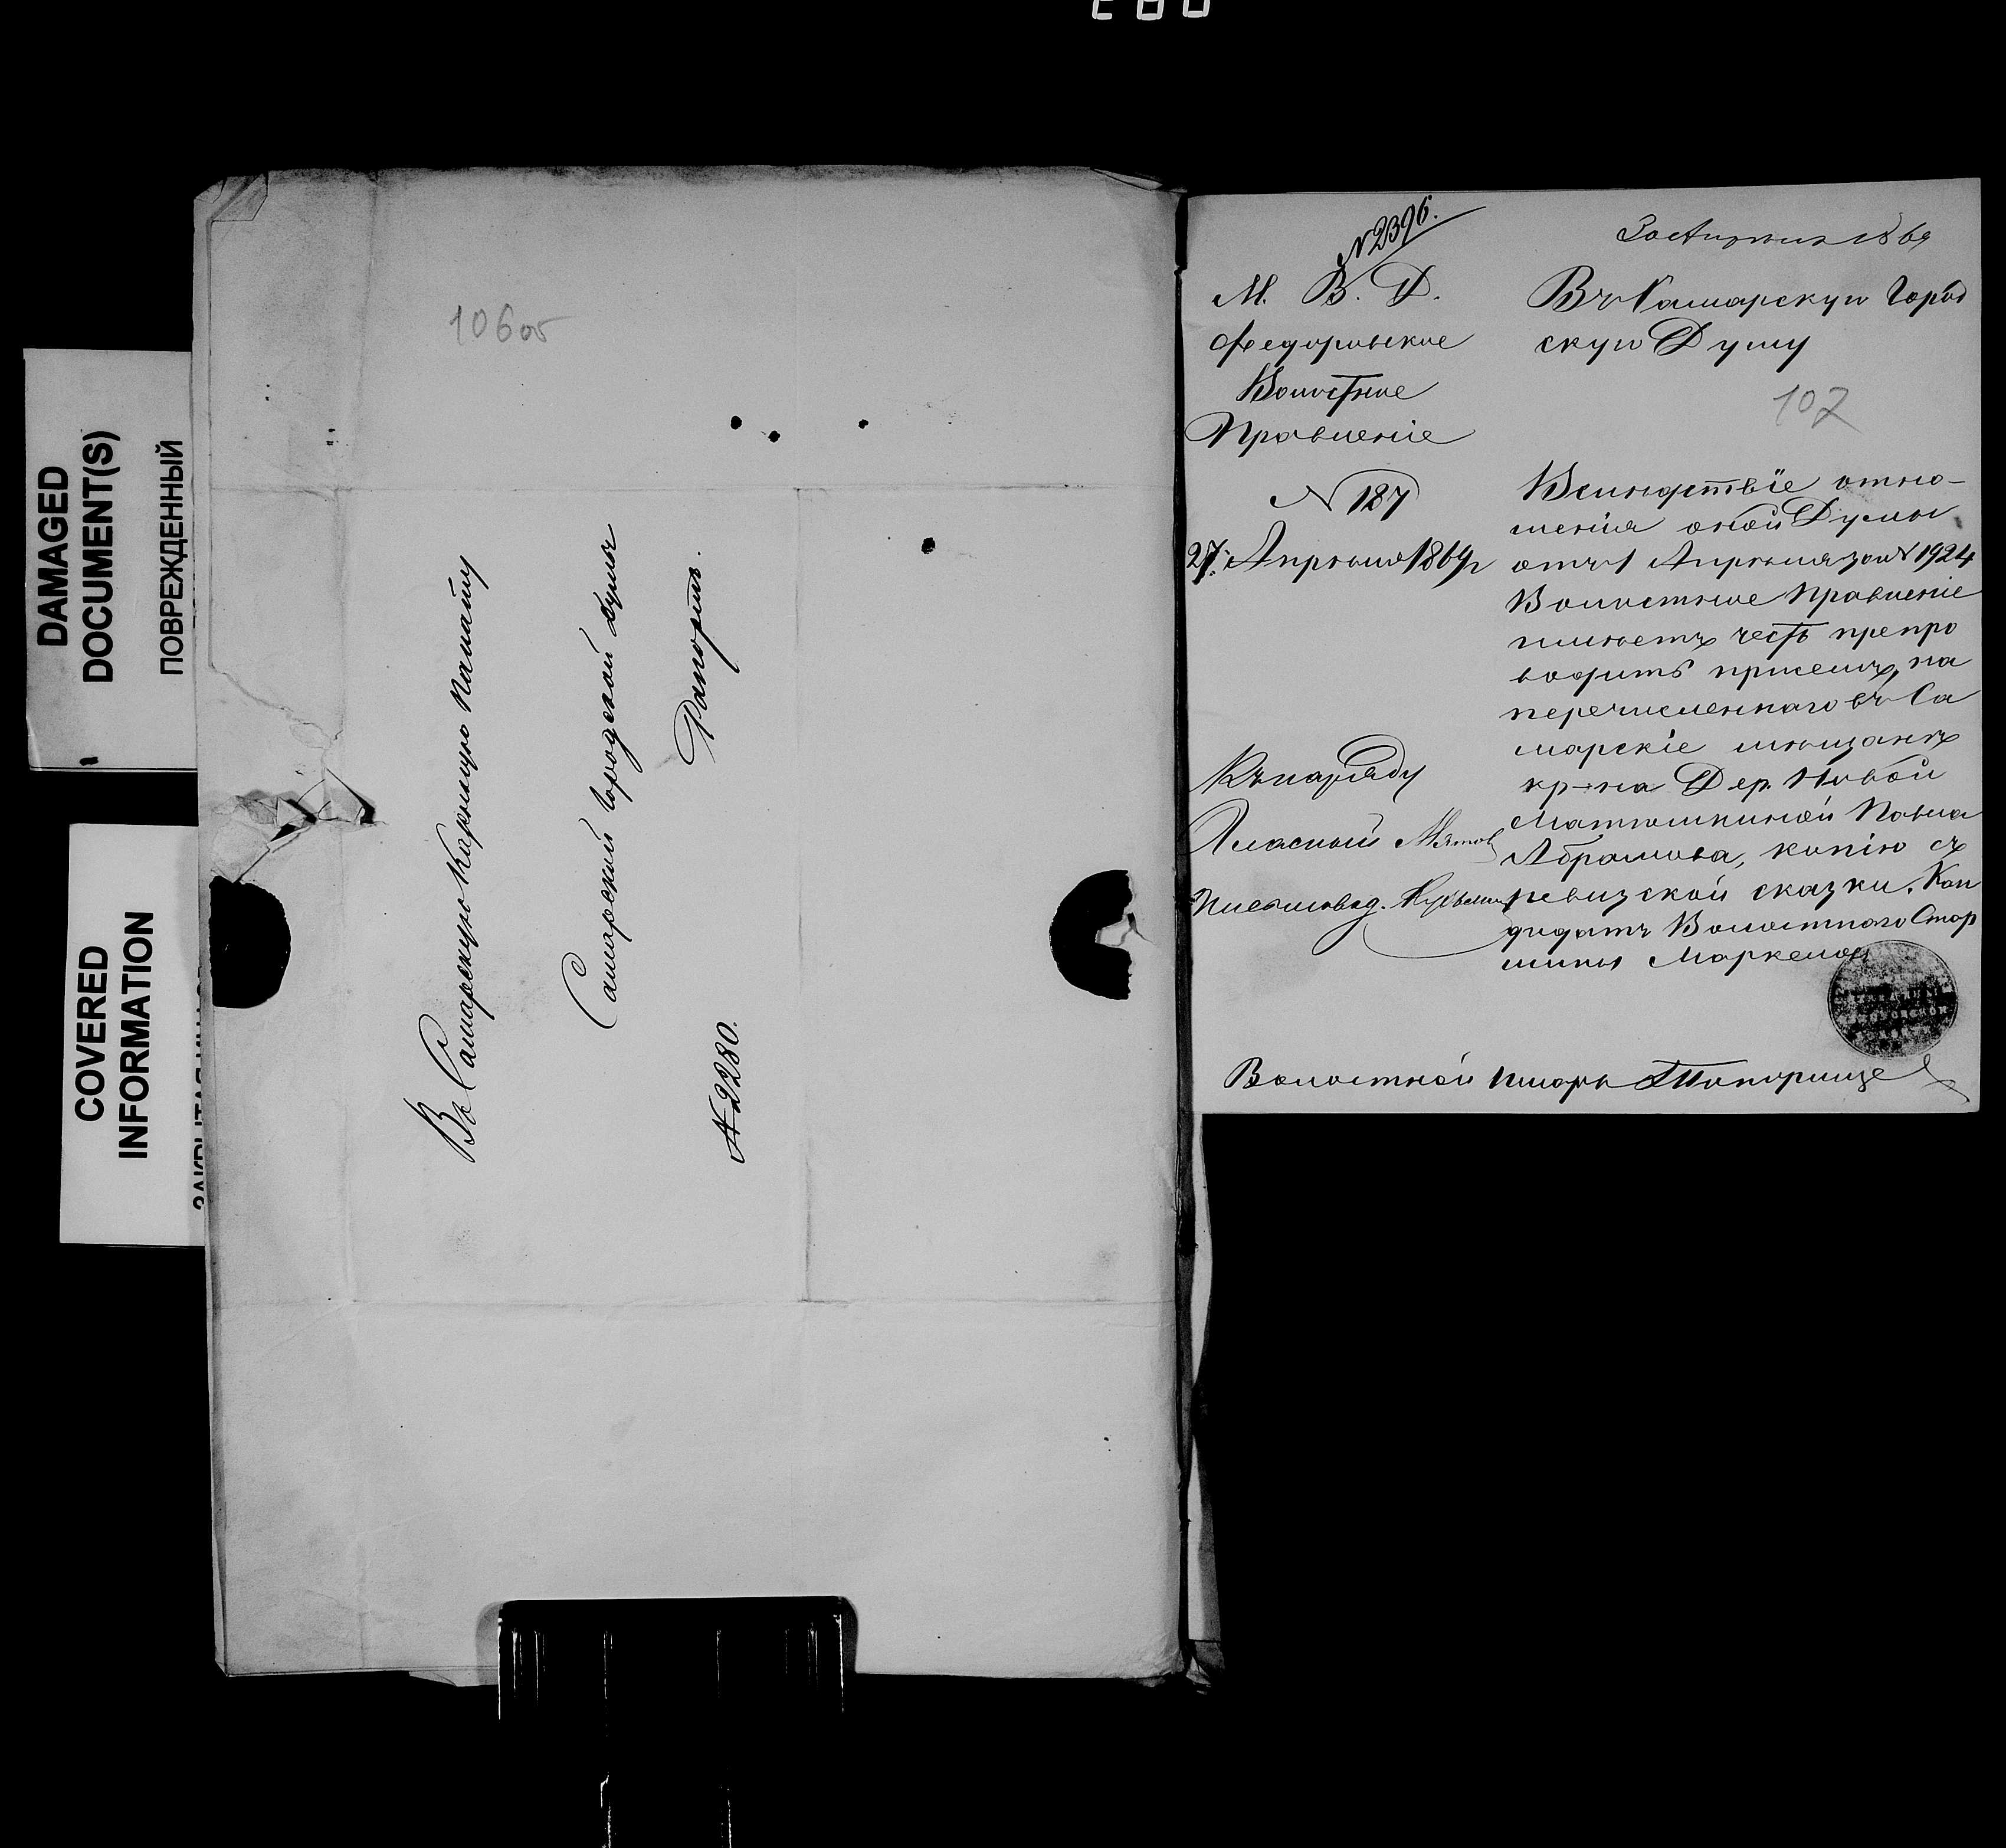 DAMAGED
DOCUMENT(S)
ПОВРЕЖДЕННЫЙ
COVERED
INFORMATION
106об
Въ Самарскую Казенную Палату
Самарской Городской Думы
Рапортъ.
№ 2280.
№ 2396.
М. В. Д.
Федоровское
Волостное
Правленіе
№ 187
27 Апреля 1869 г
Къ наряду
Гласный
Письмовод.
30 Апреля 1869
Въ Самарскую Город
скую Думу
107
Вслѣдствіе отно-
шенія оной Думы
отъ 1 Апрѣля за № 1924
Волостное Правленіе
имѣетъ честь препро
водить присемъ, на
перечисленнаго въ Са
марскіе мѣщанъ
кр-на Дер. Новой
Матюшкиной Павла
Абрамова, копію съ
ревизской сказки. Кан
дидатъ Волостного Стар
шины Маркелов
Волостной писарь